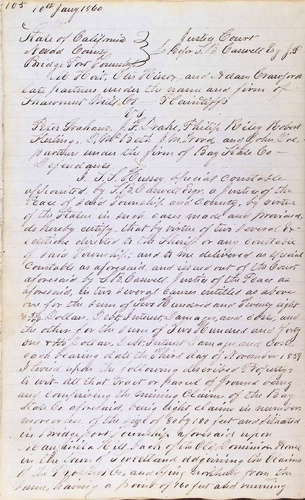 105 10th Jany 1860
State of California Justice Court
Nevada County Before T. B. Caswell Esq J.P.
Bridge Port Township
and Adam Crawford
late partners under the name and firm of
Plaintiffs
vs
Peter Graham, J. F. Drake, Philip Riley Robert
Wood and John Doe
partners under the firm of Bay State Co
Defendants
I, Hussey Special Constable
appointed by T. B. Caswell Esqr. a Justice of the
Peace of said Township and County, by virtue
of the Statute in such cases made and provided
do hereby certify, that by virtue of two several Ex-
ecutions directed to the Sheriff or any constable
of said Township, and to me delivered as Special
Constable as aforesaid, and issued out of the Court
aforesaid by T. B. Caswell Justice of the Peace as
aforesaid, in two several causes entitled as above
one for the sum of Two Hundred and Twenty eight
Dollars, Debt, Interest, Damages, and Costs, and
the other for the sum of Two Hundred and forty
one Dollars, Debt, Interest Damages and Costs
each bearing date the Third day of November 1859
I levied upon the following described Property
to wit: all that tract or parcel of ground being
and comprising the mining Claims of the Bay
State Co aforesaid, being eight claims in number
more or less of the size of 80 by 180 feet and situated
in Bridgeport Township aforesaid upon
American Hill, back of the Old Dominion House
on the and adjoining the Claims
of and lying North of from the
same, having a front of feet and running